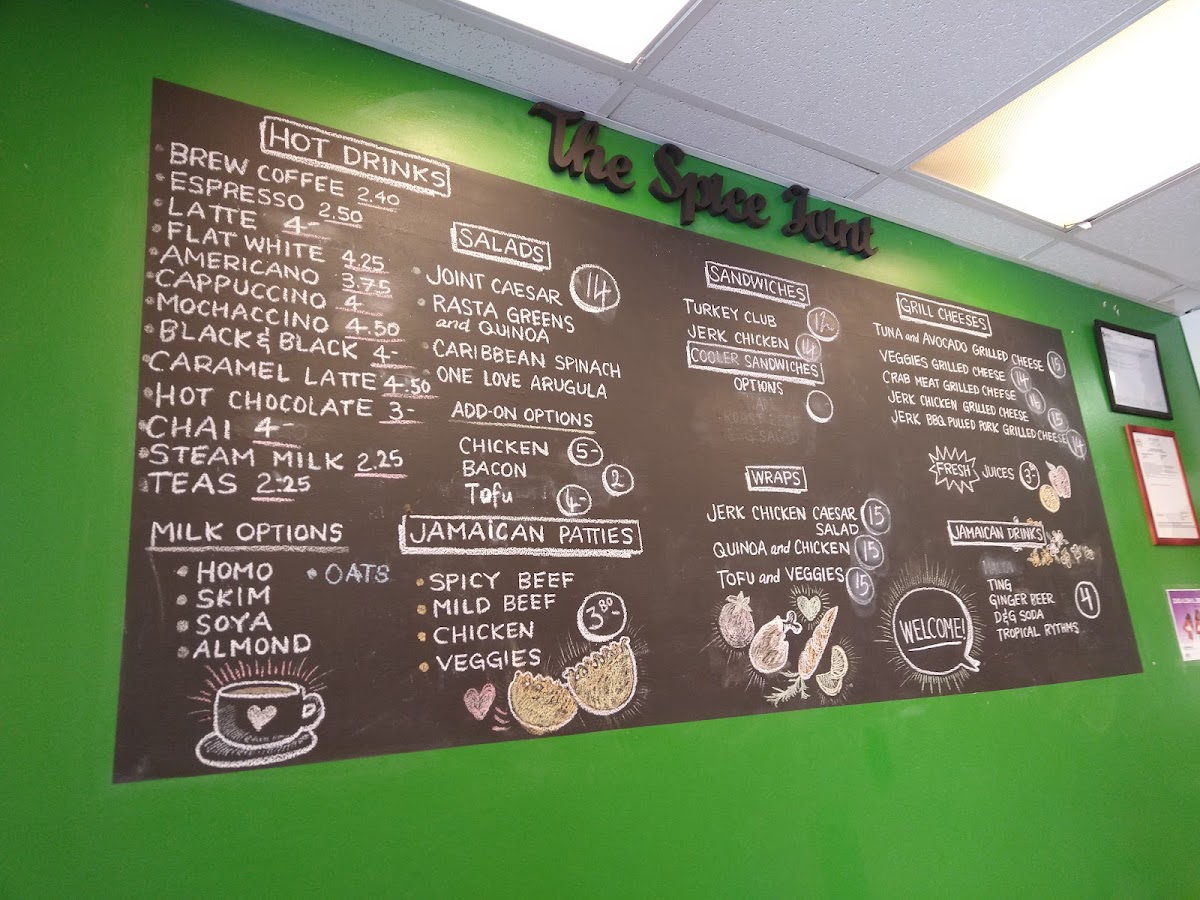 The Spice Joint
HOT DRINKS
BREW COFFEE 2.40
ESPRESSO 2.50
LATTE 4-
FLAT WHITE 4.25
AMERICANO 3.75
CAPPUCCINO 4
MOCHACCINO 4.50
BLACK & BLACK 4-
CARAMEL LATTE 4.50
HOT CHOCOLATE 3-
CHAI 4-
STEAM MILK 2.25
TEAS 2.25
MILK OPTIONS
HOMO • OATS
SKIM
SOYA
ALMOND
SALADS
JOINT CAESAR 14
RASTA GREENS
and QUINOA
CARIBBEAN SPINACH
ONE LOVE ARUGULA
ADD-ON OPTIONS
CHICKEN 5-
BACON 2
Tofu 4-
JAMAICAN PATTIES
SPICY BEEF
MILD BEEF
CHICKEN 3.80
VEGGIES
SANDWICHES
TURKEY CLUB
JERK CHICKEN 14
COOLER SANDWICHES
OPTIONS
WRAPS
JERK CHICKEN CAESAR 15
SALAD
QUINOA and CHICKEN 15
TOFU and VEGGIES 15
GRILL CHEESES
TUNA and AVOCADO GRILLED CHEESE 15
VEGGIES GRILLED CHEESE 14
CRAB MEAT GRILLED CHEESE
JERK CHICKEN GRILLED CHEESE 15
JERK BBQ PULLED PORK GRILLED CHEESE 14
FRESH JUICES
JAMAICAN DRINKS
TING
GINGER BEER 4
D&G SODA
TROPICAL RYTHMS
WELCOME!